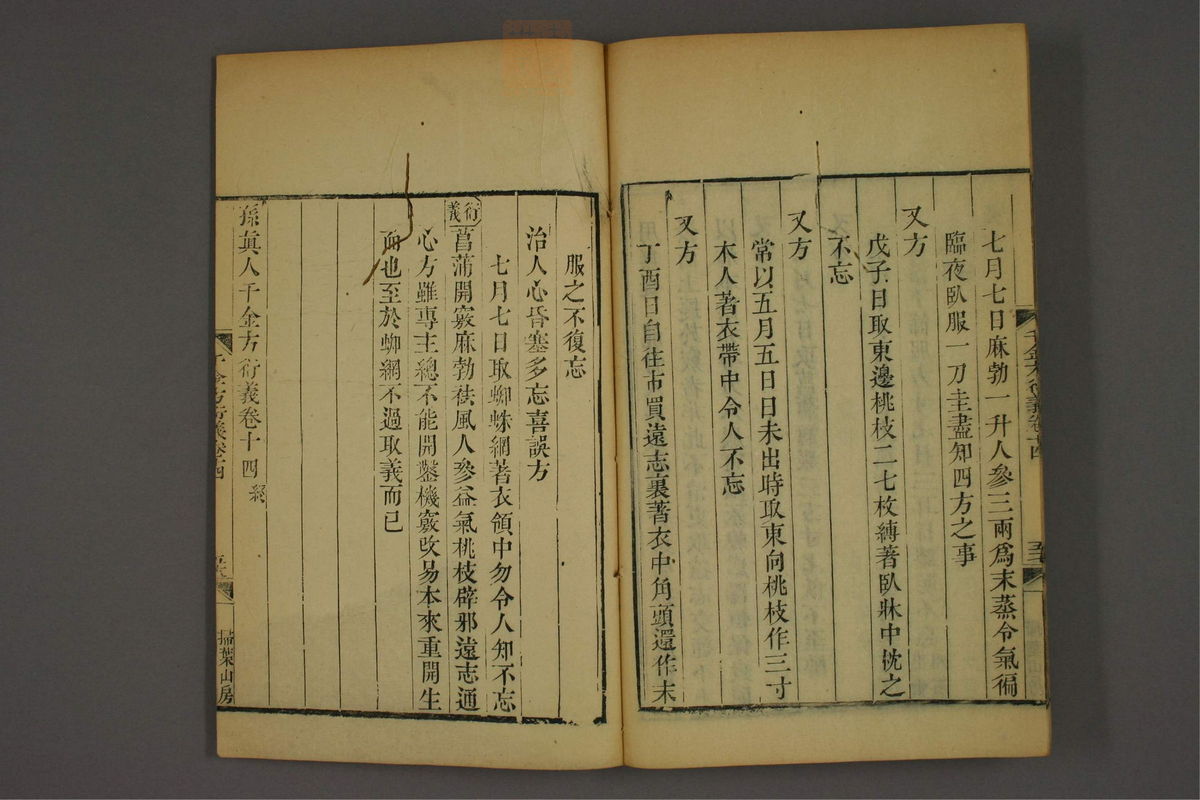 七月七日麻勃一升人參三兩爲末蒸令氣徧
臨夜臥服一刀圭盡知四方之事
又方
戊子日取東邊桃枝二七枚縛著臥牀中枕之
不忘
又方
常以五月五日日未出時取東向桃枝作三寸
木人著衣帶中令人不忘
又方
丁酉日自往市買遠志裹著衣中角頭還作末
服之不復忘
治人心昏塞多忘喜誤方
七月七日取蜘蛛網著衣領中勿令人知不忘
衍義
菖蒲開竅麻勃祛風人參益氣桃枝辟邪遠志通
心方雖專主總不能開鑿機竅攺易本來重開生
面也至於蜘網不過取義而已
孫眞人千金方衍義卷十四終
掃葉山房